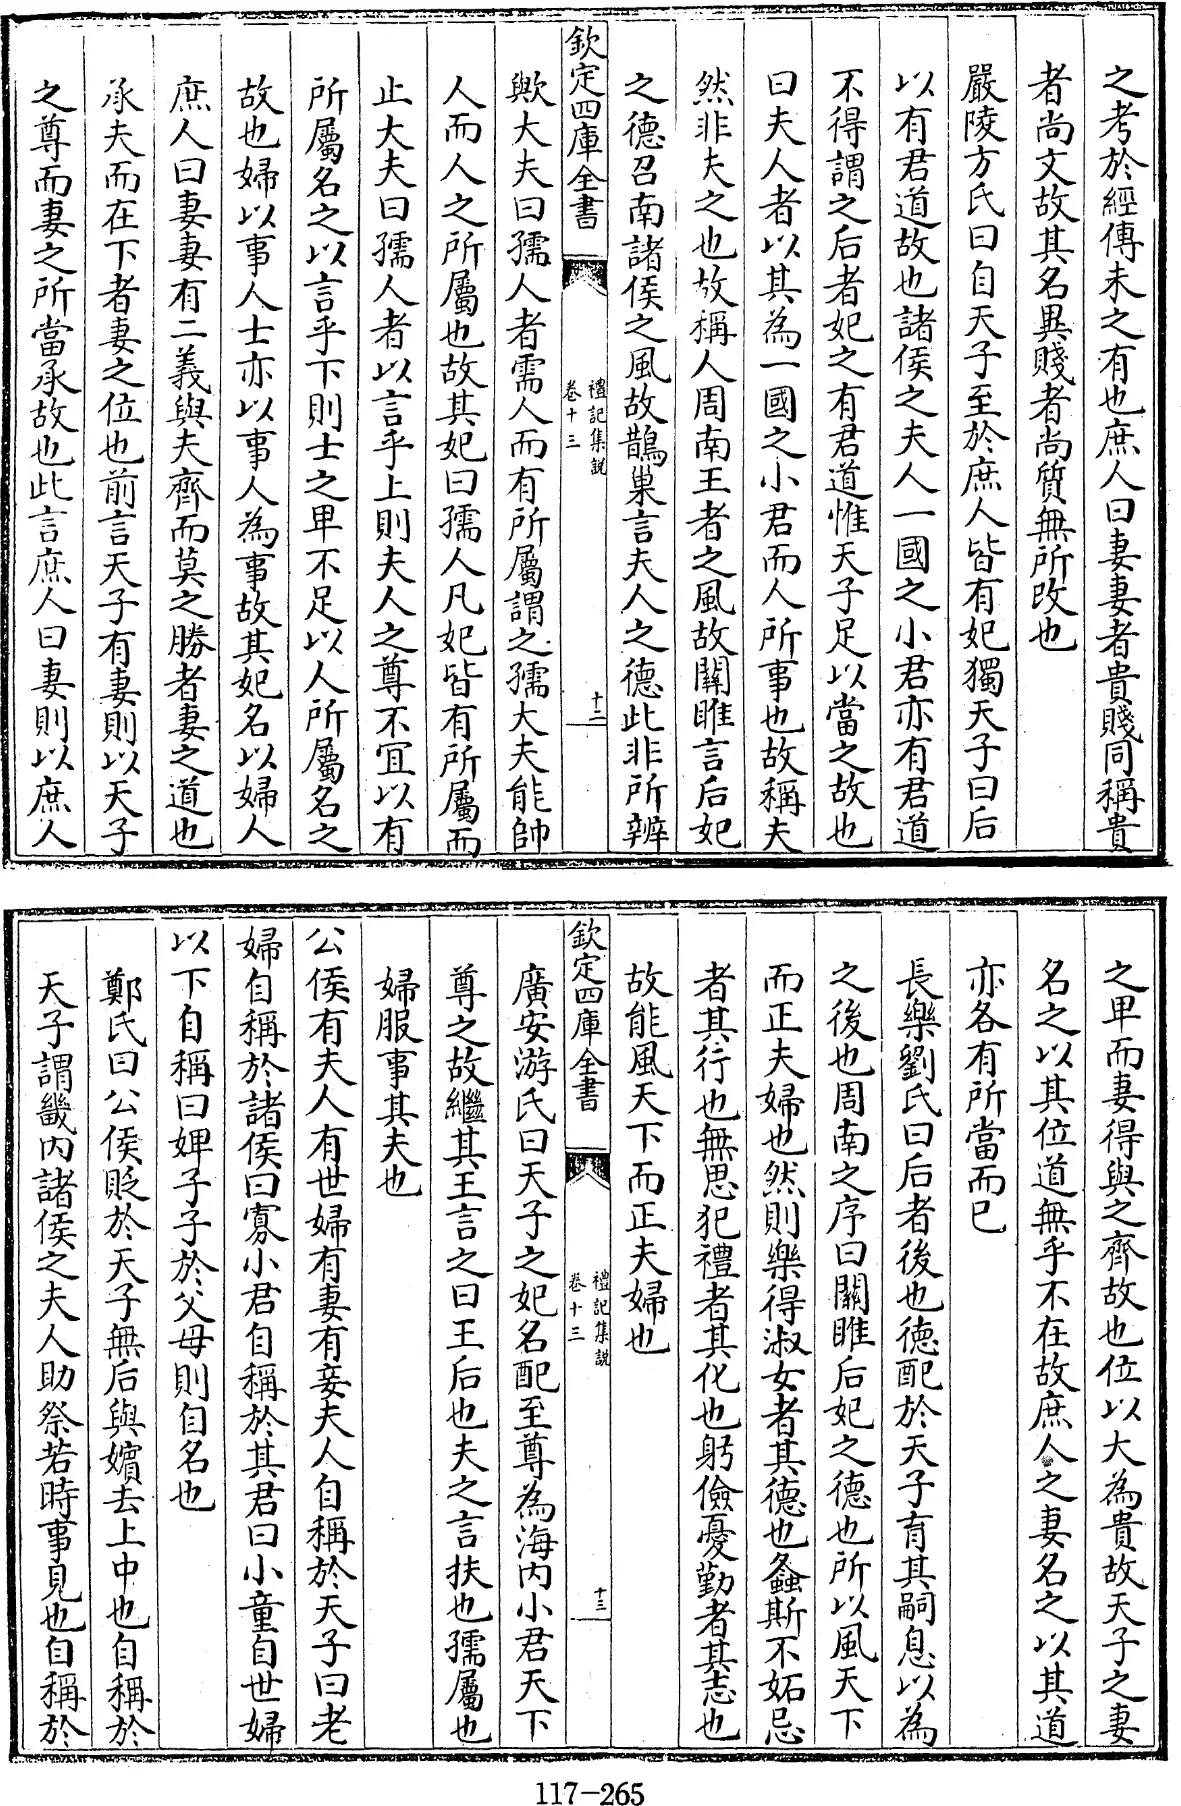 之考於經傳未之有也庶人曰妻妻者貴賤同稱貴
者尚文故其名異賤者尚質無所改也
嚴陵方氏曰自天子至於庶人皆有妃獨天子曰后
以有君道故也諸侯之夫人一國之小君亦有君道
不得謂之后者妃之有君道惟天子足以當之故也
曰夫人者以其為一國之小君而人所事也故稱夫
然非夫之也故稱人周南王者之風故關雎言后妃
之德召南諸侯之風故鵲巢言夫人之德此非所辨
欽定四庫全書
禮記集說
卷十三
十二
歟大夫曰孺人者需人而有所屬謂之孺大夫能帥
人而人之所屬也故其妃曰孺人凡妃皆有所屬而
止大夫曰孺人者以言乎上則夫人之尊不宜以有
所屬名之以言乎下則士之卑不足以人所屬名之
故也婦以事人士亦以事人為事故其妃名以婦人
庶人曰妻妻有二義與夫齊而莫之勝者妻之道也
承夫而在下者妻之位也前言天子有妻則以天子
之尊而妻之所當承故也此言庶人曰妻則以庶人
之卑而妻得與之齊故也位以大為貴故天子之妻
名之以其位道無乎不在故庶人之妻名之以其道
亦各有所當而已
長樂劉氏曰后者後也德配於天子育其嗣息以為
之後也周南之序曰關雎后妃之德也所以風天下
而正夫婦也然則樂得淑女者其德也螽斯不妬忌
者其行也無思犯禮者其化也躬儉憂勤者其志也
故能風天下而正夫婦也
欽定四庫全書
禮記集說
卷十三
十三
廣安游氏曰天子之妃名配至尊為海内小君天下
尊之故繼其王言之曰王后也夫之言扶也孺屬也
婦服事其夫也
公侯有夫人有世婦有妻有妾夫人自稱於天子曰老
婦自稱於諸侯曰寡小君自稱於其君曰小童自世婦
以下自稱曰婢子子於父母則自名也
鄭氏曰公侯貶於天子無后與嬪去上中也自稱於
天子謂畿内諸侯之夫人助祭若時事見也自稱於
117-265